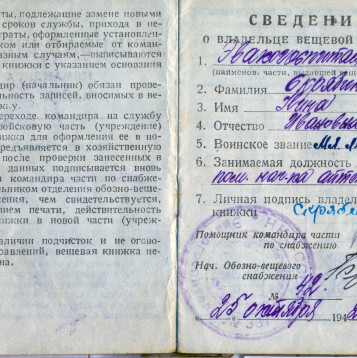 ты, подлежащие замене новыми
сроков службы, прихода в не-
траты, оформленные установлен-
ком или отбираемые от коман-
азным случаям,—выписываются
книжки с указанием основания
мир (начальник) обязан прове-
льность записей, вносимых в ве-
жку.
переходе командира на службу
войсковую часть (учреждение)
книжка для оформления ее в но-
редъявляется в хозяйственную
после проверки занесенных в
данных подписывается вновь
командира части по снабже-
льником отделения обозно-веще-
жения, чем свидетельствуется,
ением печати, действительность
книжки в новой части (учреж-
аличии подчисток и не огово-
равлений, вещевая книжка не-
на.
СВЕДЕНИ
О ВЛАДЕЛЬЦЕ ВЕЩЕВОЙ
1. Эвакогоспитал
(наименов. части, выдавшей вещ
2. Фамилия
3. Имя Нина
4. Отчество Ивановна
5. Воинское звание Мл.
6. Занимаемая должность
пом. нач-ка
7. Личная подпись владел
книжки
Помощник командира части
по снабжению
Нач. Обозно-вещевого
снабжения
№ 42.
„25“ октября 194